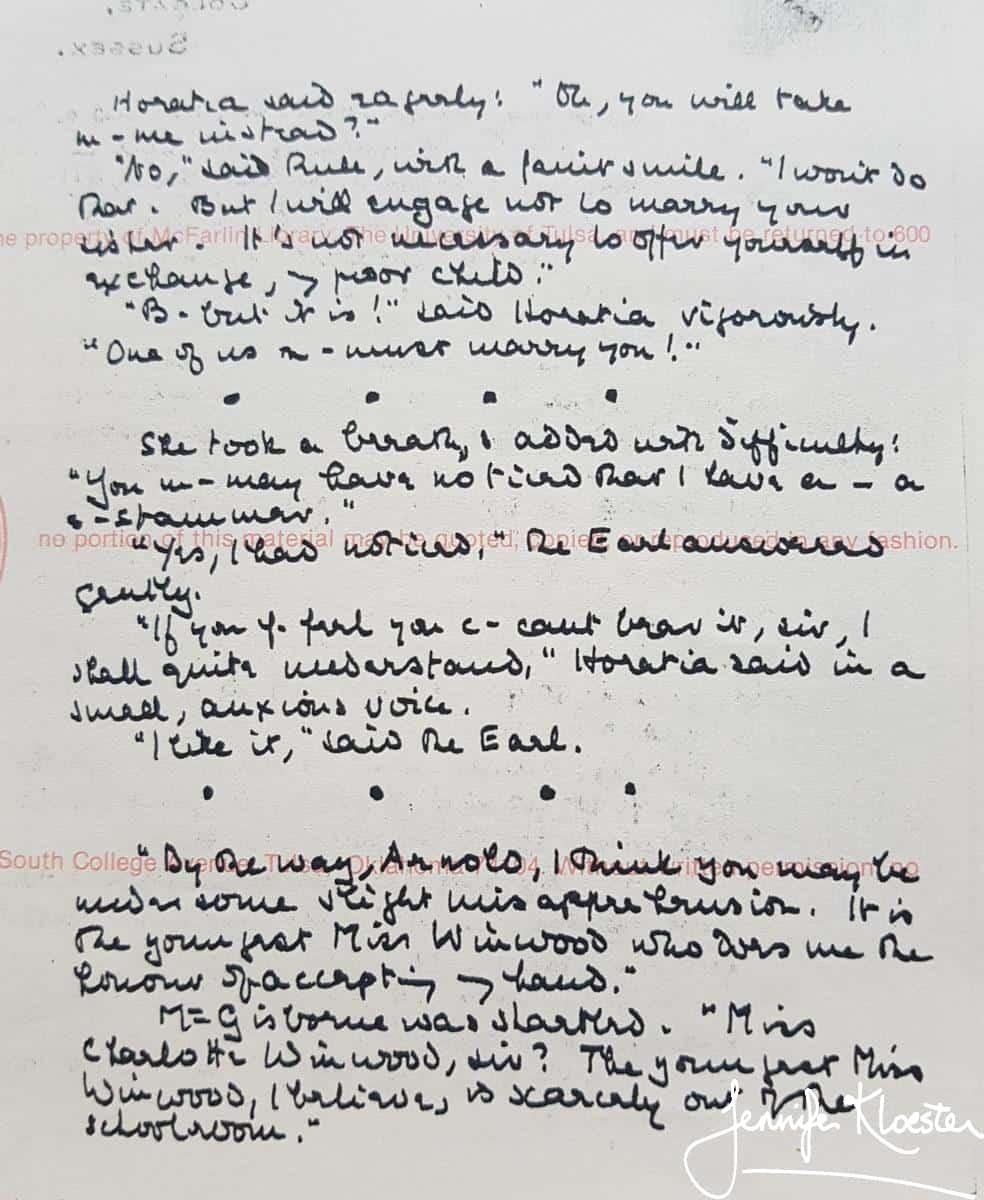 SUSSEX.
Horatia said eagerly: "Oh, you will take
m-me instead?"
"No," said Rule, with a faint smile. "I won't do
that. But I will engage not to marry your
he property of McFarlin Library, The University of Tulsa, and must be returned to 600
sister. It's not necessary to offer yourself in
exchange, my poor child."
"B-but it is!" said Horatia vigorously.
"One of us m-must marry you!"
• • • •
She took a breath, & added with difficulty:
"You m-may have noticed that I have a - a
s-stammer."
no portion of this material may be quoted, copied, or reproduced in any fashion.
"Yes, I had noticed," the Earl answered
gently.
"If you f-feel you c-cant bear it, sir, I
shall quite understand," Horatia said in a
small, anxious voice.
"I like it," said the Earl.
• • • •
South College Avenue, Tulsa, Oklahoma 74104. Without written permission, no
"By the way, Arnold, I think you may be
under some slight misapprehension. It is
the youngest Miss Winwood who does me the
honour of accepting my hand."
Mr Gisborne was startled. "Miss
Charlotte Winwood, sir? The youngest Miss
Winwood, I believe, is scarcely out of the
schoolroom."
Jennifer Kloester